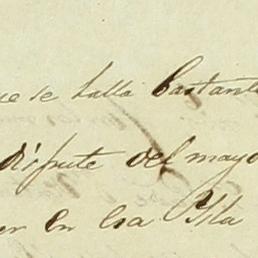 ue se halla bastante
dispute del mayo
er en esa Isla